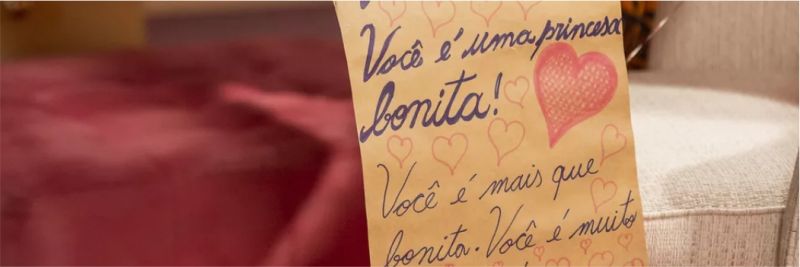 Você é uma princesa
bonita!
Você é mais que
bonita. Você é muito